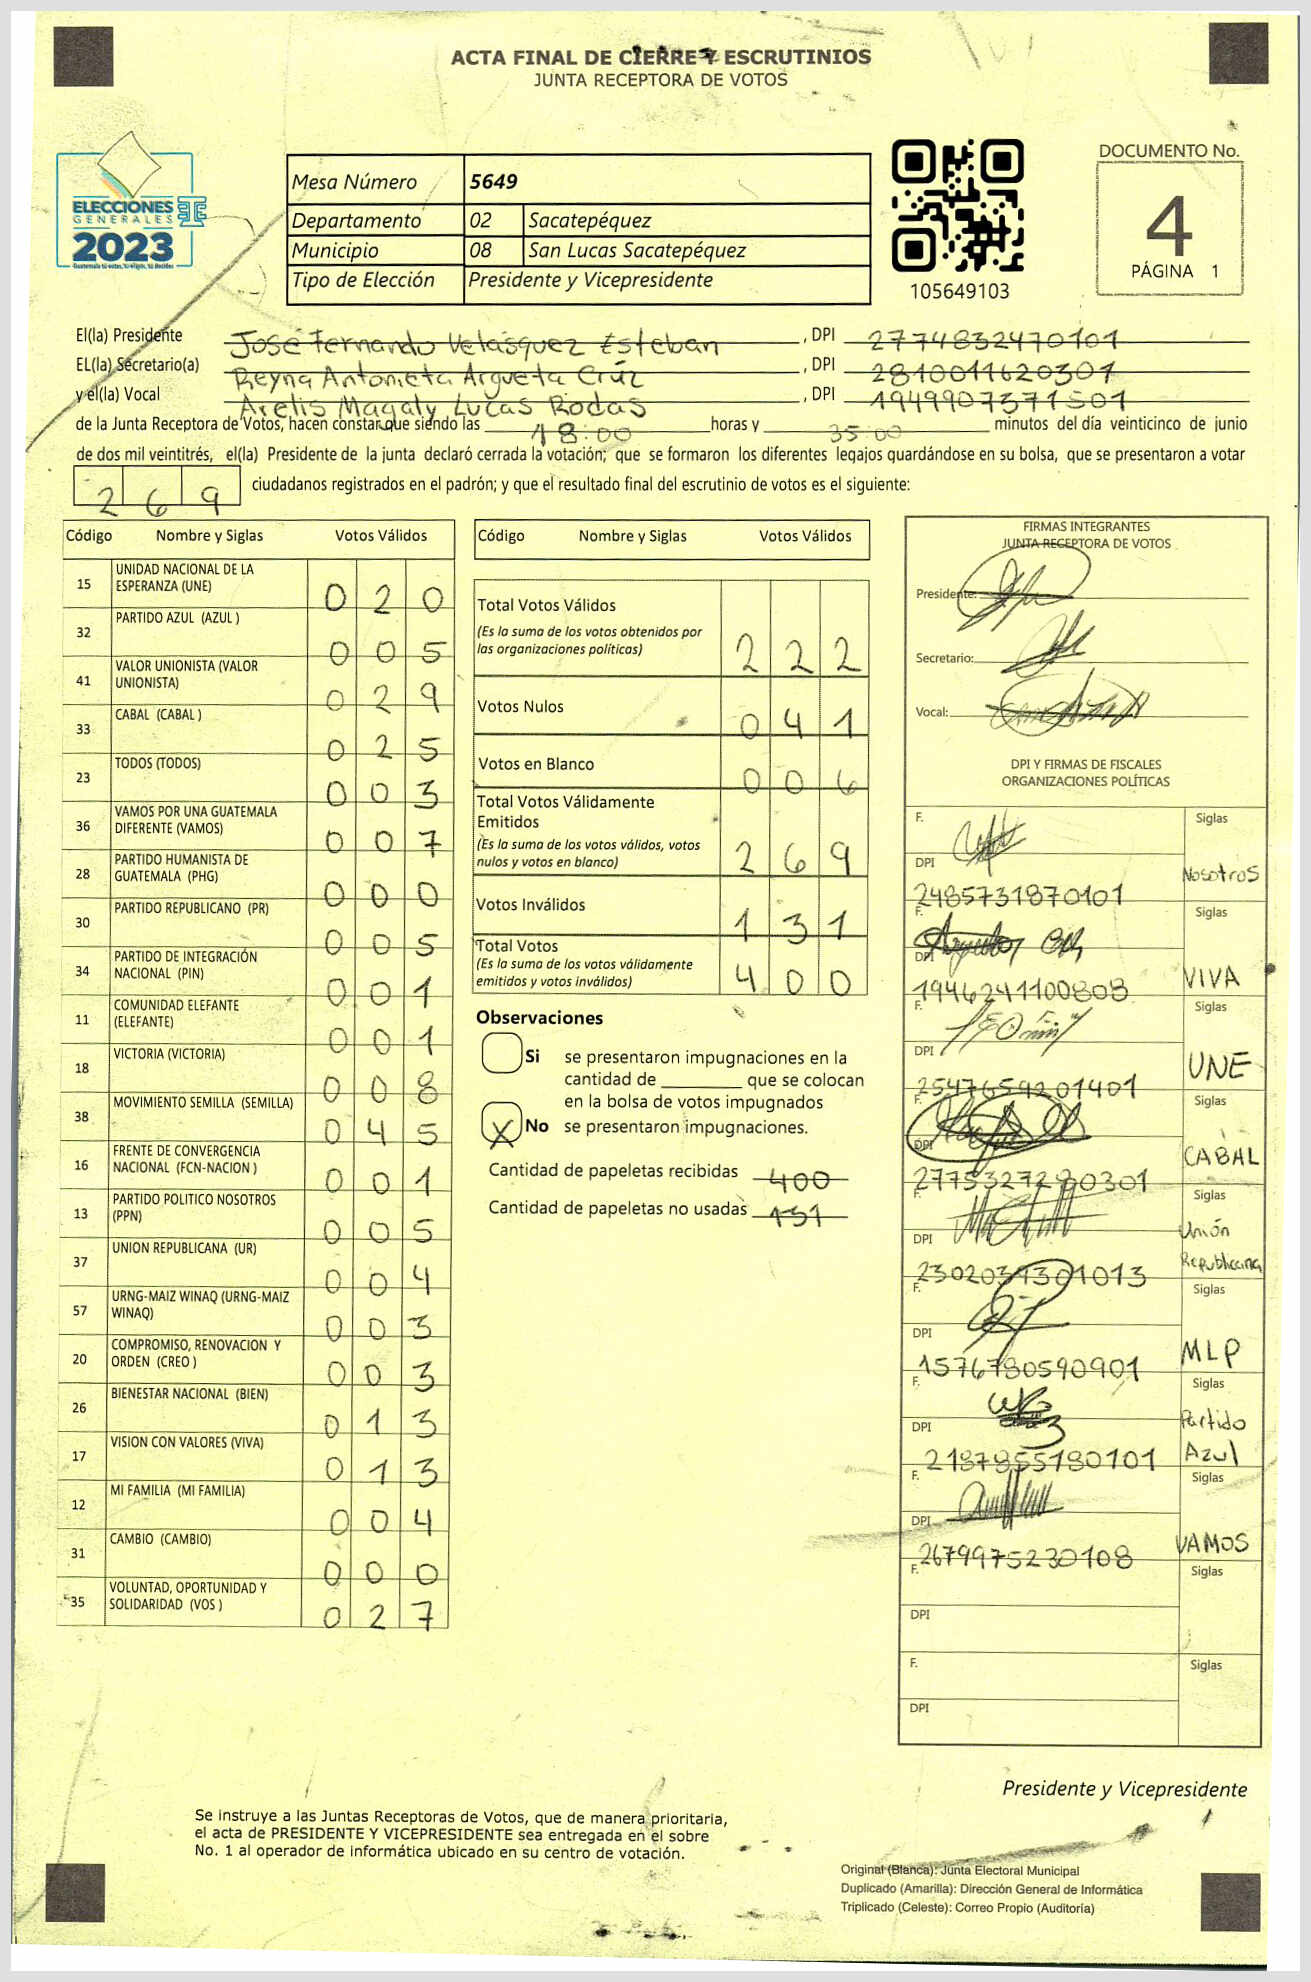 ACTA FINAL DE CIERRE Y ESCRUTINIOS
JUNTA RECEPTORA DE VOTOS
ELECCIONES
GENERALES
2023
Guatemala tú votas, tú eliges, tú decides
Mesa Número 5649
Departamento 02 Sacatepéquez
Municipio 08 San Lucas Sacatepéquez
Tipo de Elección Presidente y Vicepresidente
105649103
DOCUMENTO No.
4
PÁGINA 1
El(la) Presidente José Fernando Velasquez Esteban , DPI 2774832470101
EL(la) Secretario(a) Reyna Antonieta Argueta Cruz , DPI 2810011620301
y el(la) Vocal Arelis Magaly Lucas Rodas , DPI 1949907371501
de la Junta Receptora de Votos, hacen constar que siendo las 18:00 horas y 35:00 minutos del día veinticinco de junio
de dos mil veintitrés, el(la) Presidente de la junta declaró cerrada la votación; que se formaron los diferentes legajos guardándose en su bolsa, que se presentaron a votar
269 ciudadanos registrados en el padrón; y que el resultado final del escrutinio de votos es el siguiente:
Código Nombre y Siglas Votos Válidos
15 UNIDAD NACIONAL DE LA ESPERANZA (UNE) 0 2 0
32 PARTIDO AZUL (AZUL ) 0 0 5
41 VALOR UNIONISTA (VALOR UNIONISTA) 0 2 9
33 CABAL (CABAL ) 0 2 5
23 TODOS (TODOS) 0 0 3
36 VAMOS POR UNA GUATEMALA DIFERENTE (VAMOS) 0 0 7
28 PARTIDO HUMANISTA DE GUATEMALA (PHG) 0 0 0
30 PARTIDO REPUBLICANO (PR) 0 0 5
34 PARTIDO DE INTEGRACIÓN NACIONAL (PIN) 0 0 1
11 COMUNIDAD ELEFANTE (ELEFANTE) 0 0 1
18 VICTORIA (VICTORIA) 0 0 8
38 MOVIMIENTO SEMILLA (SEMILLA) 0 4 5
16 FRENTE DE CONVERGENCIA NACIONAL (FCN-NACION ) 0 0 1
13 PARTIDO POLITICO NOSOTROS (PPN) 0 0 5
37 UNION REPUBLICANA (UR) 0 0 4
57 URNG-MAIZ WINAQ (URNG-MAIZ WINAQ) 0 0 3
20 COMPROMISO, RENOVACION Y ORDEN (CREO ) 0 0 3
26 BIENESTAR NACIONAL (BIEN) 0 1 3
17 VISION CON VALORES (VIVA) 0 1 3
12 MI FAMILIA (MI FAMILIA) 0 0 4
31 CAMBIO (CAMBIO) 0 0 0
35 VOLUNTAD, OPORTUNIDAD Y SOLIDARIDAD (VOS ) 0 2 7
Código Nombre y Siglas Votos Válidos
Total Votos Válidos 2 2 2
(Es la suma de los votos obtenidos por
las organizaciones políticas)
Votos Nulos 0 4 1
Votos en Blanco 0 0 6
Total Votos Válidamente
Emitidos 2 6 9
(Es la suma de los votos válidos, votos
nulos y votos en blanco)
Votos Inválidos 1 3 1
Total Votos 4 0 0
(Es la suma de los votos válidamente
emitidos y votos inválidos)
Observaciones
Si se presentaron impugnaciones en la
cantidad de ________ que se colocan
en la bolsa de votos impugnados
X No se presentaron impugnaciones.
Cantidad de papeletas recibidas 400
Cantidad de papeletas no usadas 131
FIRMAS INTEGRANTES
JUNTA RECEPTORA DE VOTOS
Presidente:
Secretario:
Vocal:
DPI Y FIRMAS DE FISCALES
ORGANIZACIONES POLÍTICAS
F. Siglas
DPI 2485731870101 Nosotros
F. Siglas
DPI 1946241100808 VIVA
F. Siglas
DPI 2547659201401 UNE
F. Siglas
DPI 2775327280301 CABAL
F. Siglas
DPI 2302039301013 Unión Republicana
F. Siglas
DPI 1576780590901 MLP
F. Siglas
DPI 2187855180101 Partido Azul
F. Siglas
DPI 2679975230108 VAMOS
F. Siglas
DPI
F. Siglas
DPI
Presidente y Vicepresidente
Se instruye a las Juntas Receptoras de Votos, que de manera prioritaria,
el acta de PRESIDENTE Y VICEPRESIDENTE sea entregada en el sobre
No. 1 al operador de informática ubicado en su centro de votación.
Original (Blanca): Junta Electoral Municipal
Duplicado (Amarilla): Dirección General de Informática
Triplicado (Celeste): Correo Propio (Auditoría)